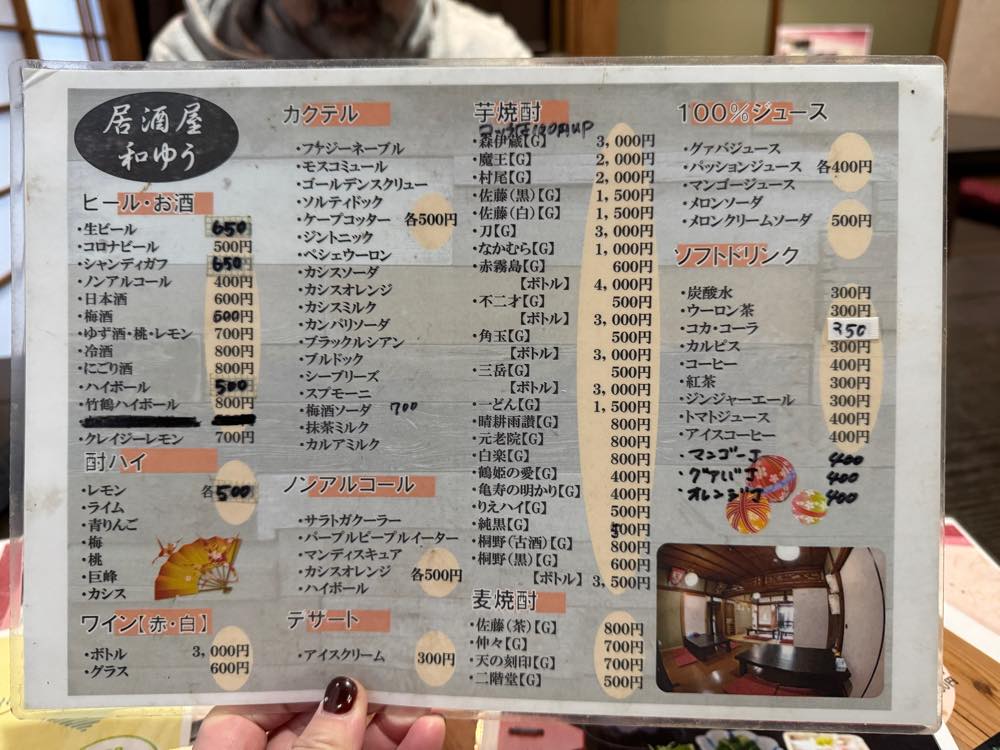 居酒屋
和ゆう
ビール・お酒
・生ビール 650
・コロナビール 500円
・シャンディガフ 650
・ノンアルコール 400円
・日本酒 600円
・梅酒 600円
・ゆず酒・桃・レモン 700円
・冷酒 800円
・にごり酒 800円
・ハイボール 500
・竹鶴ハイボール 800円
・クレイジーレモン 700円
酎ハイ
・レモン 各500
・ライム
・青りんご
・梅
・桃
・巨峰
・カシス
ワイン【赤・白】
・ボトル 3,000円
・グラス 600円
カクテル
・ファジーネーブル
・モスコミュール
・ゴールデンスクリュー
・ソルティドック
・ケープコッター 各500円
・ジントニック
・ペシェウーロン
・カシスソーダ
・カシスオレンジ
・カシスミルク
・カンパリソーダ
・ブラックルシアン
・ブルドック
・シーブリーズ
・スプモーニ
・梅酒ソーダ 700
・抹茶ミルク
・カルアミルク
ノンアルコール
・サラトガクーラー
・パープルピープルイーター
・マンディスキュア
・カシスオレンジ 各500円
・ハイボール
デザート
・アイスクリーム 300円
芋焼酎
・森伊蔵【G】 3,000円
・魔王【G】 2,000円
・村尾【G】 2,000円
・佐藤(黒)【G】 1,500円
・佐藤(白)【G】 1,500円
・刀【G】 3,000円
・なかむら【G】 1,000円
・赤霧島【G】 600円
【ボトル】 4,000円
・不二才【G】 500円
【ボトル】 3,000円
・角玉【G】 500円
【ボトル】 3,000円
・三岳【G】 500円
【ボトル】 3,000円
・一どん【G】 1,500円
・晴耕雨讀【G】 800円
・元老院【G】 800円
・白楽【G】 800円
・鶴姫の愛【G】 400円
・亀寿の明かり【G】 400円
・りえハイ【G】 500円
・純黒【G】 500円
・桐野(古酒)【G】 800円
・桐野(黒)【G】 600円
【ボトル】 3,500円
麦焼酎
・佐藤(茶)【G】 800円
・仲々【G】 700円
・天の刻印【G】 700円
・二階堂【G】 500円
100%ジュース
・グァバジュース
・パッションジュース 各400円
・マンゴージュース
・メロンソーダ
・メロンクリームソーダ 500円
ソフトドリンク
・炭酸水 300円
・ウーロン茶 300円
・コカ・コーラ 350
・カルピス 300円
・コーヒー 400円
・紅茶 300円
・ジンジャーエール 300円
・トマトジュース 400円
・アイスコーヒー 400円
・マンゴーJ 400
・グアバJ 400
・オレンジJ 400